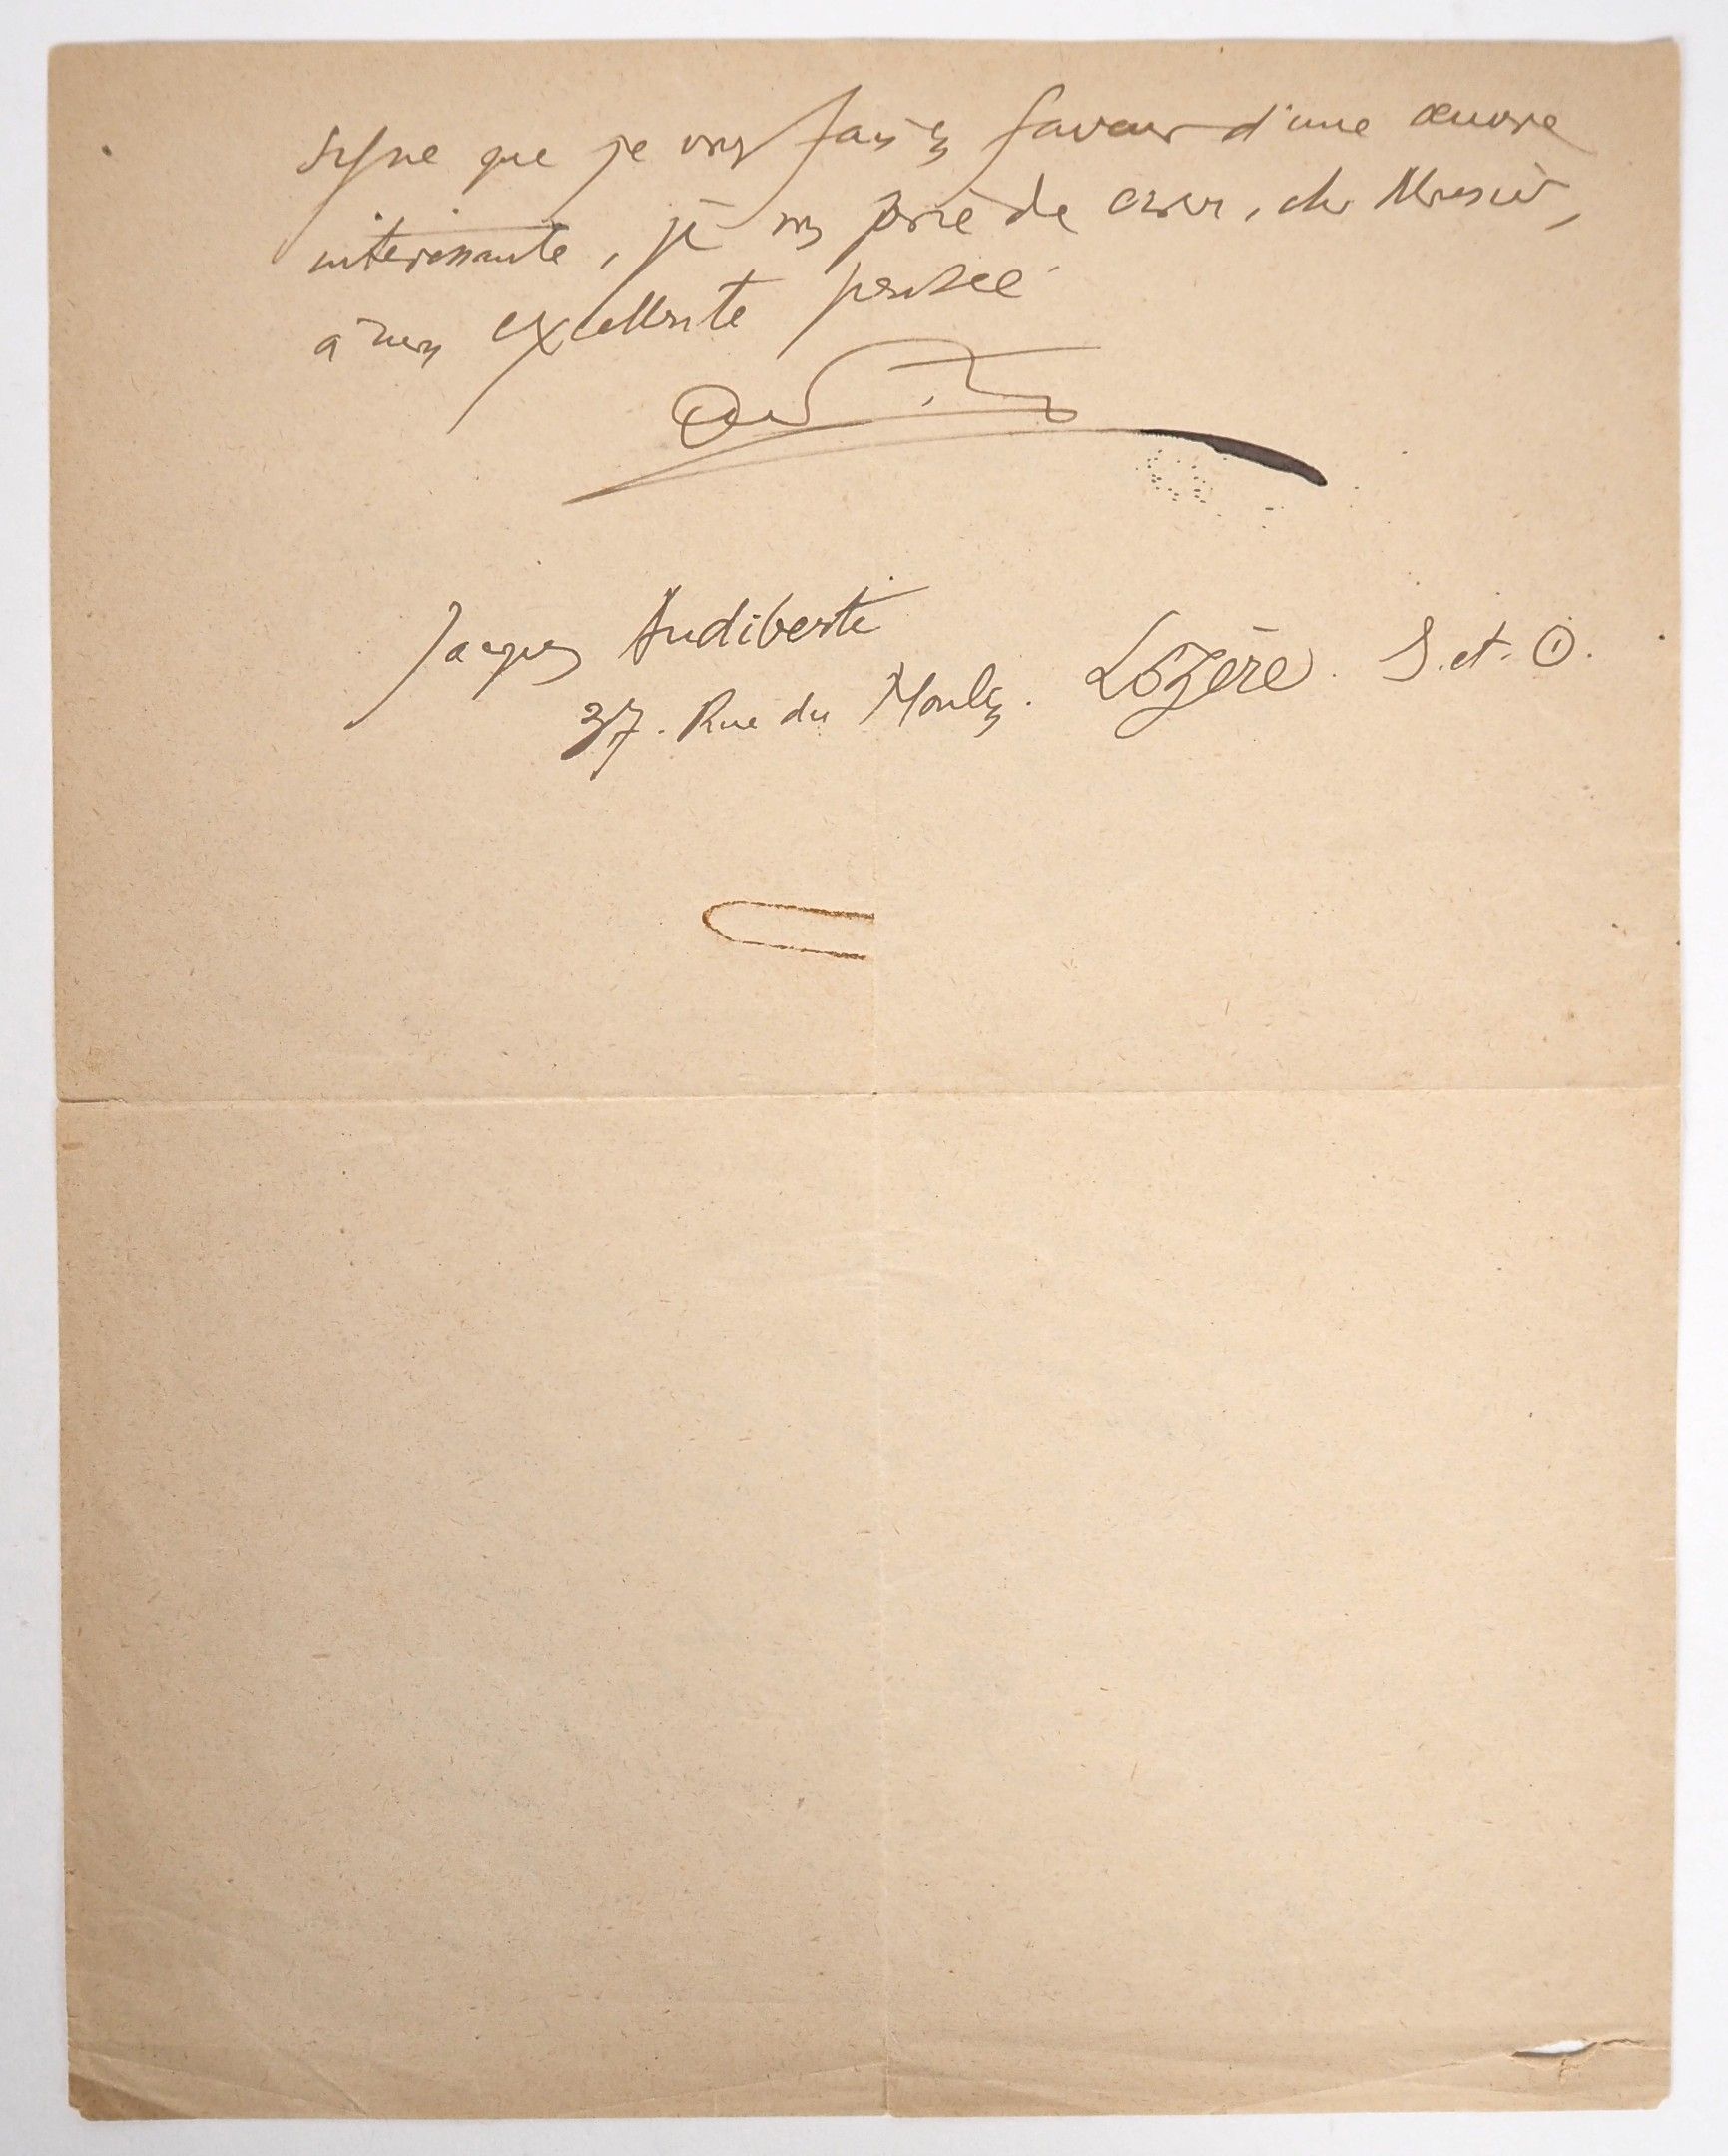 signe que je vous fais en faveur d'une œuvre
intéressante, je vous prie de croire, cher Monsieur,
à mon excellente pensée
Audiberti
Jacques Audiberti
37. Rue du Moulin. Lozère. S. et. O.